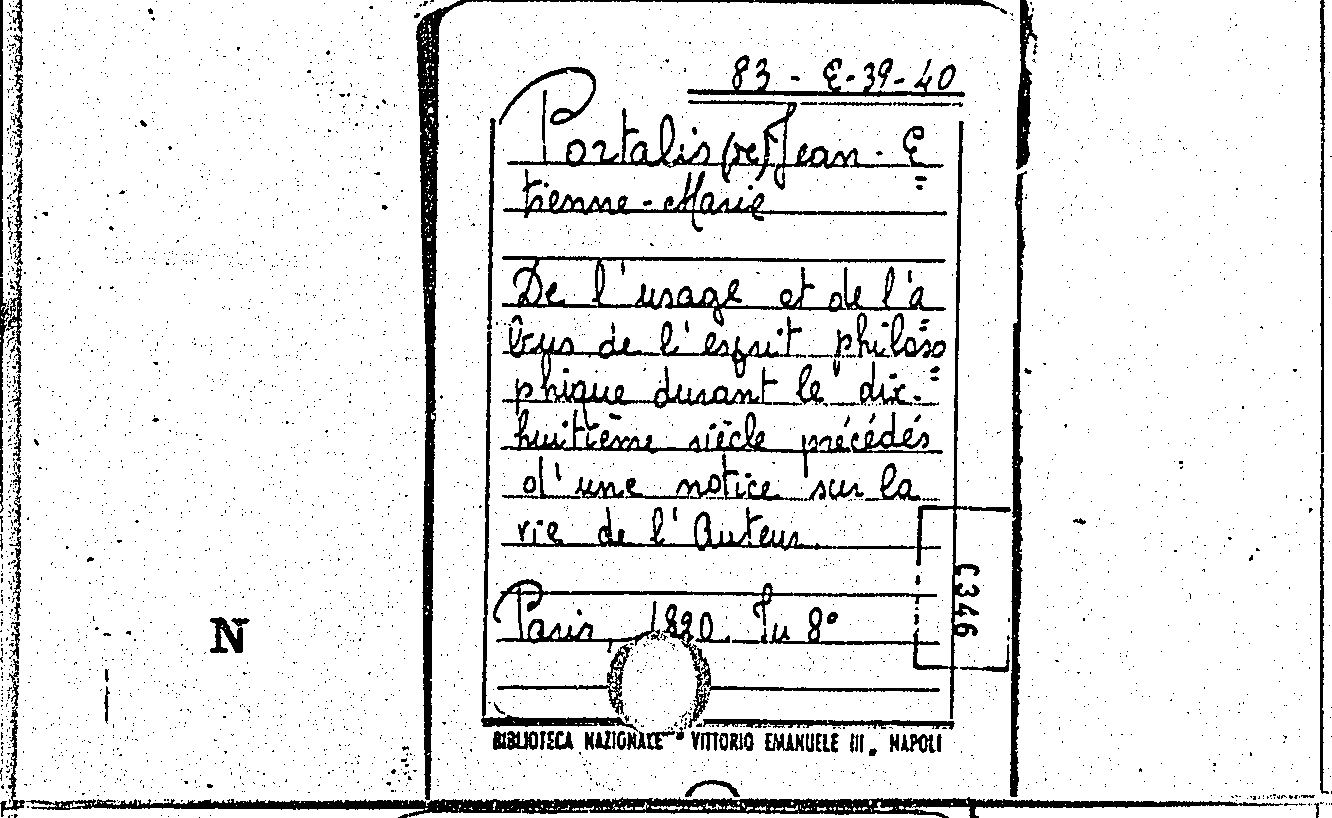 83 - E-39-40
Portalis (de) Jean - E=
tienne-Marie
De l'usage et de l'a=
bus de l'esprit philoso=
phique durant le dix-
huitième siècle précédés
d'une notice sur la
vie de l'Auteur.
Paris, 1820. In 8°
C346
N
BIBLIOTECA NAZIONALE "VITTORIO EMANUELE III" NAPOLI